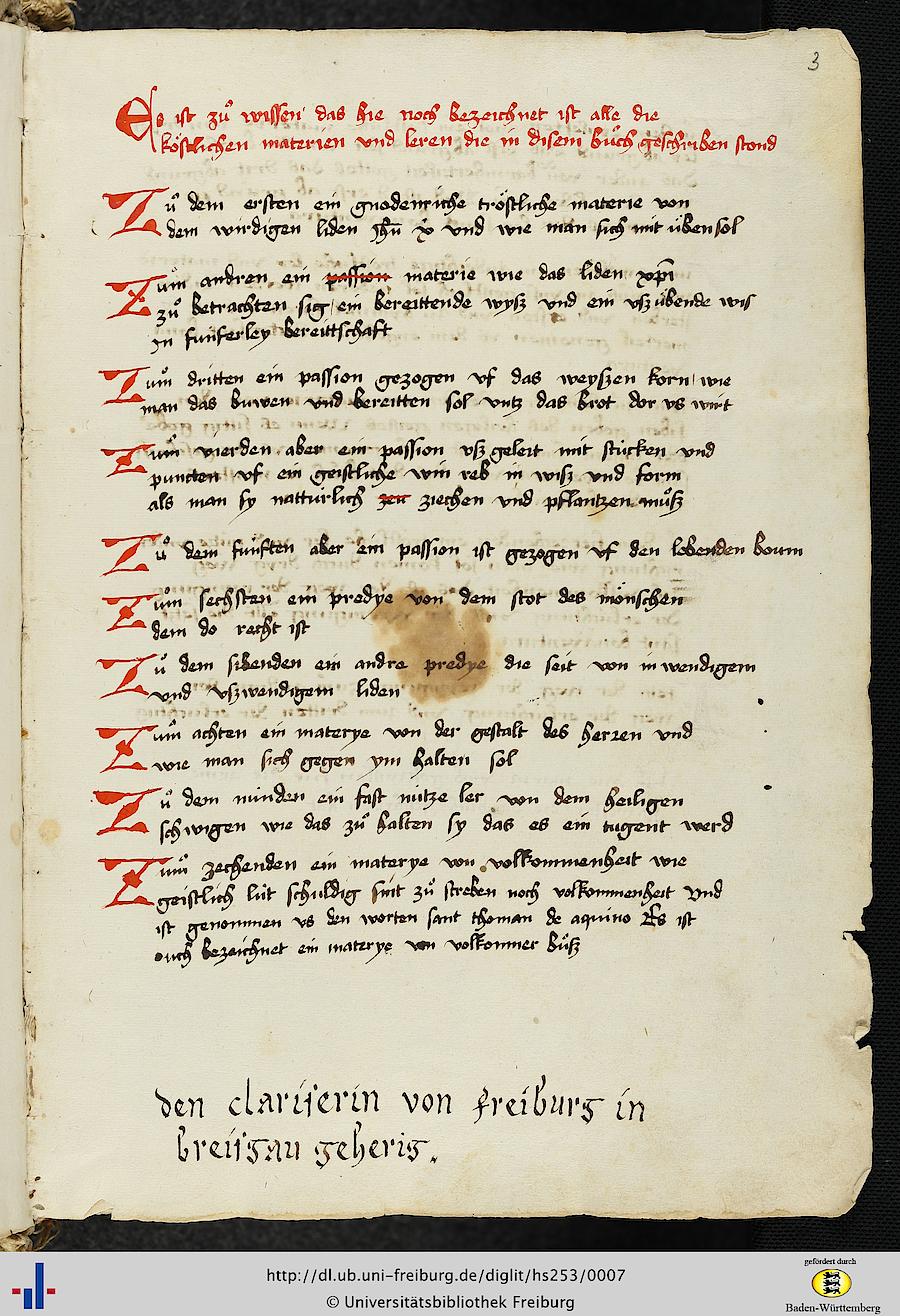 3
Es ist zů wissen das hie noch bezeichnet ist alle die
köstlichen materien vnd leren die in disem bůch geschriben stond
Zů dem ersten ein gnodenriche tröstliche materie von
dem wirdigen liden jhū x̄ vnd wie man sich mit üben sol
Zum andren ein passion materie wie das liden xp̄i
zů betrachten sig ein bereittende wysz vnd ein vszübende wis
jn funferley bereittschaft
Zum dritten ein passion gezogen vf das weyszen korn wie
man das buwen vnd bereitten sol vntz das brot dor vs wirt
Zum vierden aber ein passion vsz geleit mit stucken vnd
puncten vf ein geistliche win reb in wisz vnd form
als man sy natturlich zen ziechen vnd pflantzen můsz
Zů dem funften aber ein passion ist gezogen vf den lebenden boum
Zum sechsten ein predye von dem stot des mönschen
dem do recht ist
Zů dem sibenden ein andre predye die seit von inwendigem
vnd vszwendigem liden
Zum achten ein materye von der gestalt des herzen vnd
wie man sich gegen ym halten sol
Zů dem nunden ein fast nutze ler von dem heiligen
schwigen wie das zů halten sy das es ein tugent werd
Zum zechenden ein materye von volkommenheit wie
geistlich lut schuldig sint zů streben noch volkommenheit vnd
ist genomen vs den worten sant thoman de aquino Es ist
ouch bezeichnet ein materye von volkomner bůsz
den clarisserin von freiburg in
breisgau geherig.
http://dl.ub.uni-freiburg.de/diglit/hs253/0007
© Universitätsbibliothek Freiburg
gefördert durch
Baden-Württemberg